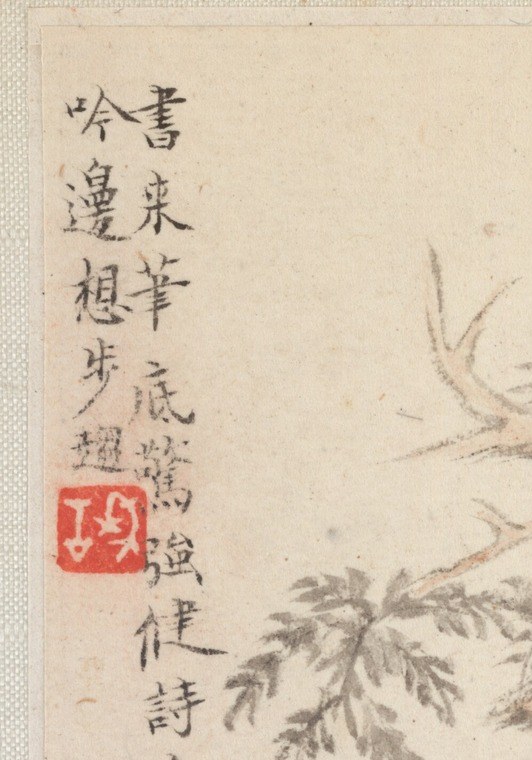 書来筆底驚強健詩
吟邊想步趨